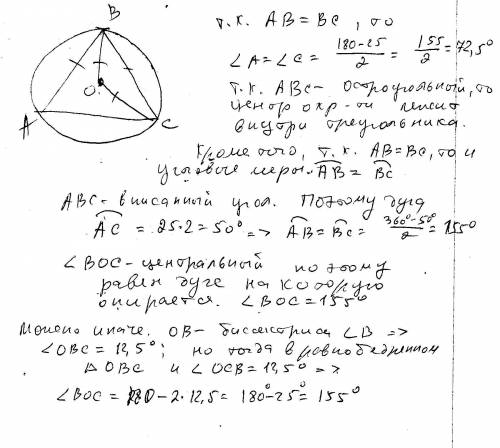 B
O
A
C
т.к. AB = BC, то
∠A = ∠C = (180-25)/2 = 155/2 = 72,5°
т.к. ABC - остроугольный, то
центр окр-ти лежит
внутри треугольника.
Кроме того, т.к. AB = BC, то и
угловые меры ◠AB = ◠BC
ABC - вписанный угол. Поэтому дуга
◠AC = 25·2 = 50° => ◠AB = ◠BC = (360°-50°)/2 = 155°
∠BOC - центральный поэтому
равен дуге на которую
опирается. ∠BOC = 155°
Можно иначе. OB - биссектриса ∠B =>
∠OBC = 12,5°; но тогда в равнобедренном
△OBC и ∠OCB = 12,5° =>
∠BOC = 180 - 2·12,5 = 180° - 25° = 155°